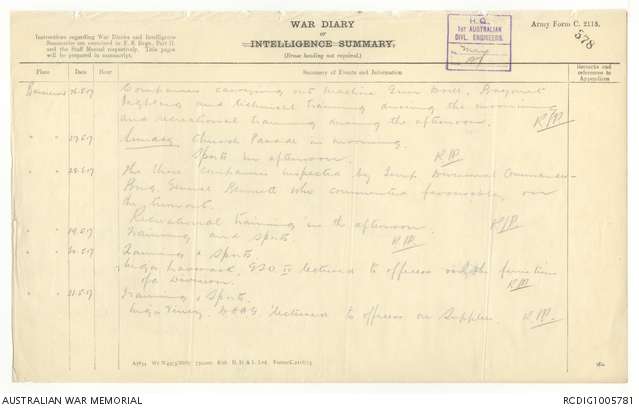 Instructions regarding War Diaries and Intelligence
Summaries are contained in F. S. Regs., Part II.
and the Staff Manual respectively. Title pages
will be prepared in manuscript.
WAR DIARY
or
INTELLIGENCE SUMMARY.
(Erase heading not required.)
H.Q.
1ST AUSTRALIAN
DIVL. ENGINEERS.
May
Army Form C. 2118.
578
Place Date Hour Summary of Events and Information Remarks and references to Appendices
26.5.17 Companies carrying out Machine Gun Bayonet
fighting and technical training during the morning
and recreational training during the afternoon. R/P
" 27.5.17 Sunday Church Parade in morning.
Sports in afternoon. R/P
" 28.5.17 The three companies inspected by Divisional Commander
General Bennett who commented favourably on
the turnout.
Recreational training in the afternoon. R/P
" 29.5.17 Training and Sports. R/P
" 30.5.17 Training & Sports
GSO lectured to officers on the function
of a Division. R/P
" 31.5.17 Training & Sports.
lectured to officers on Supplies. R/P
AUSTRALIAN WAR MEMORIAL
RCDIG1005781